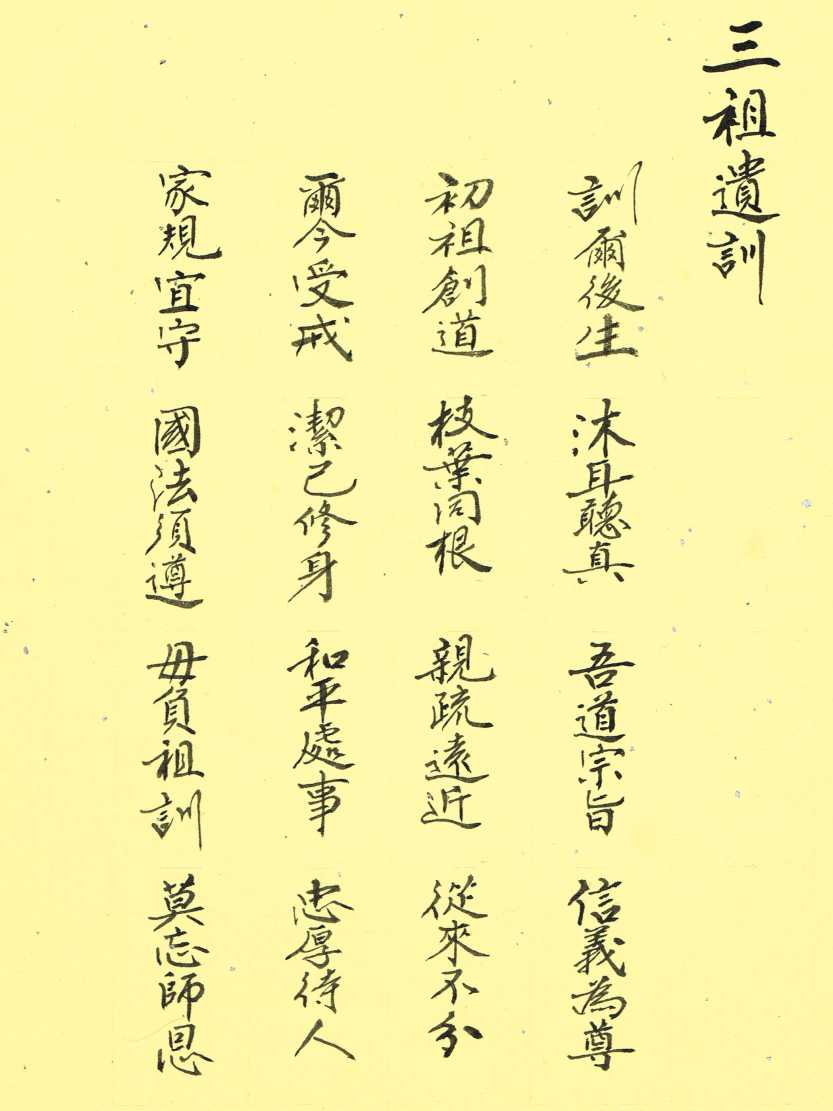 三祖遺訓
訓爾後生 沐耳聽真 吾道宗旨 信義為尊
初祖創道 枝葉同根 親疏遠近 從來不分
爾今受戒 潔己修身 和平處事 忠厚待人
家規宜守 國法須遵 毋負祖訓 莫忘師恩